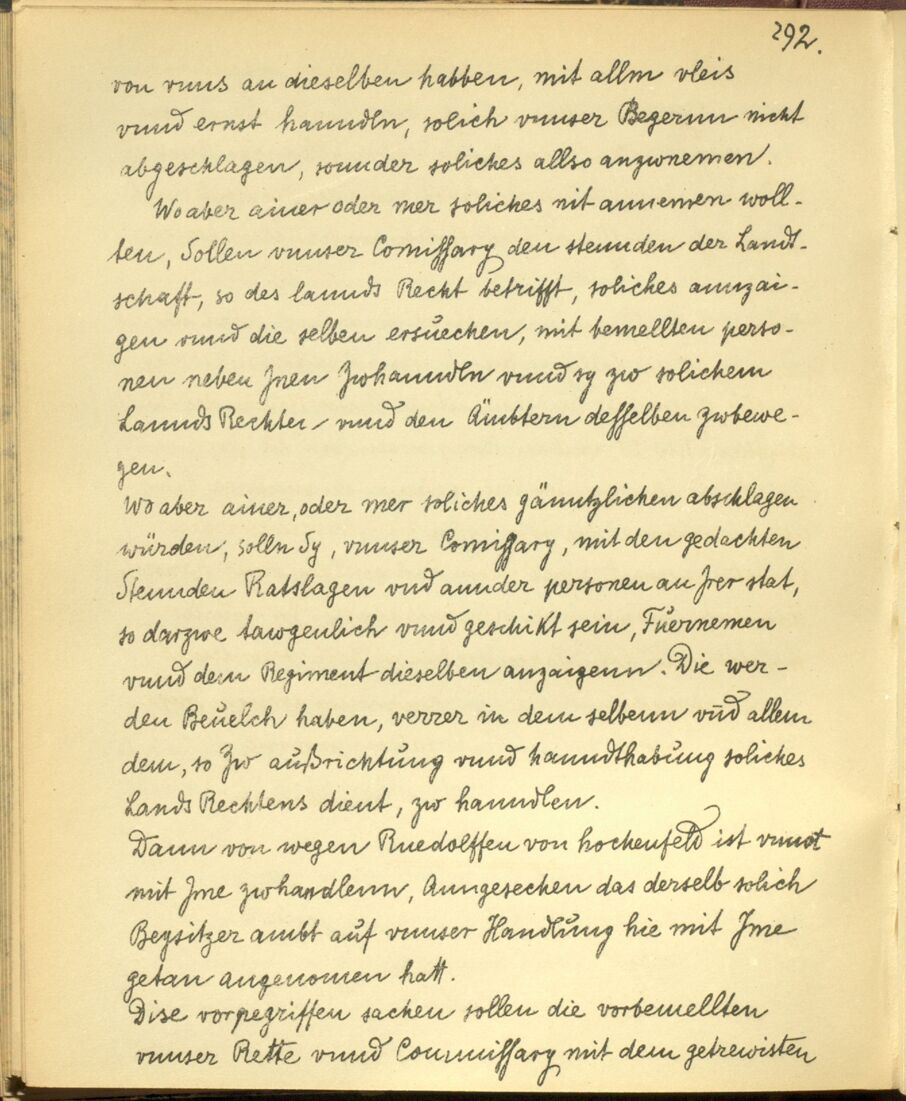 292.
von vnns an dieselben habben, mit allm vleis
vnnd ernst hanndln, solich vnnser Begernn nicht
abgeschlagen, sonnder soliches allso anzwnemen.
Wo aber ainer oder mer soliches nit annemen woll-
ten, Sollen vnnser Comissary den stennden der Landt-
schaft, so des lannds Recht betrifft, soliches annzai-
gen vnnd die selben ersuechen, mit bemellten perso-
nen neben Jnen Zwhanndln vnnd sy zw solichem
Lannds Rechten vnnd den Ämbtern desselben zwbewe-
gen.
Wo aber ainer, oder mer soliches gänntzlichen abschlagen
würden, solln Sy, vnnser Comissary, mit den gedachten
Stennden Ratslagen vnd annder personen an Jrer stat,
so darzwe tawgenlich vnnd geschikt sein, Füernemen
vnnd dem Regiment dieselben anzaigenn. Die wer-
den Beuelch haben, verrer in dem selbenn vnd allem
dem, so Zw außrichtung vnnd hanndthabung soliches
Lands Rechtens dient, zw hanndlen.
Dann von wegen Ruedolffen von hochenfeld ist vnnot
mit Jme zwhandlenn, Anngesechen das derselb solich
Beysitzer ambt auf vnnser Handlung hie mit Jme
getan angenomen hatt.
Dise vorpegriffen sachen sollen die vorbemellten
vnnser Rette vnnd Commissary mit dem getrewisten